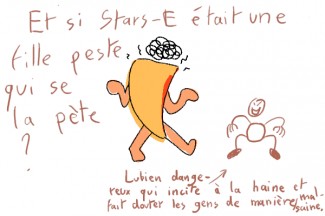 Et si Stars-E était une
fille peste
qui se
la pète
?
Lubien dange-
reux qui incite à la haine et
fait douter les gens de manière mal-
saine.